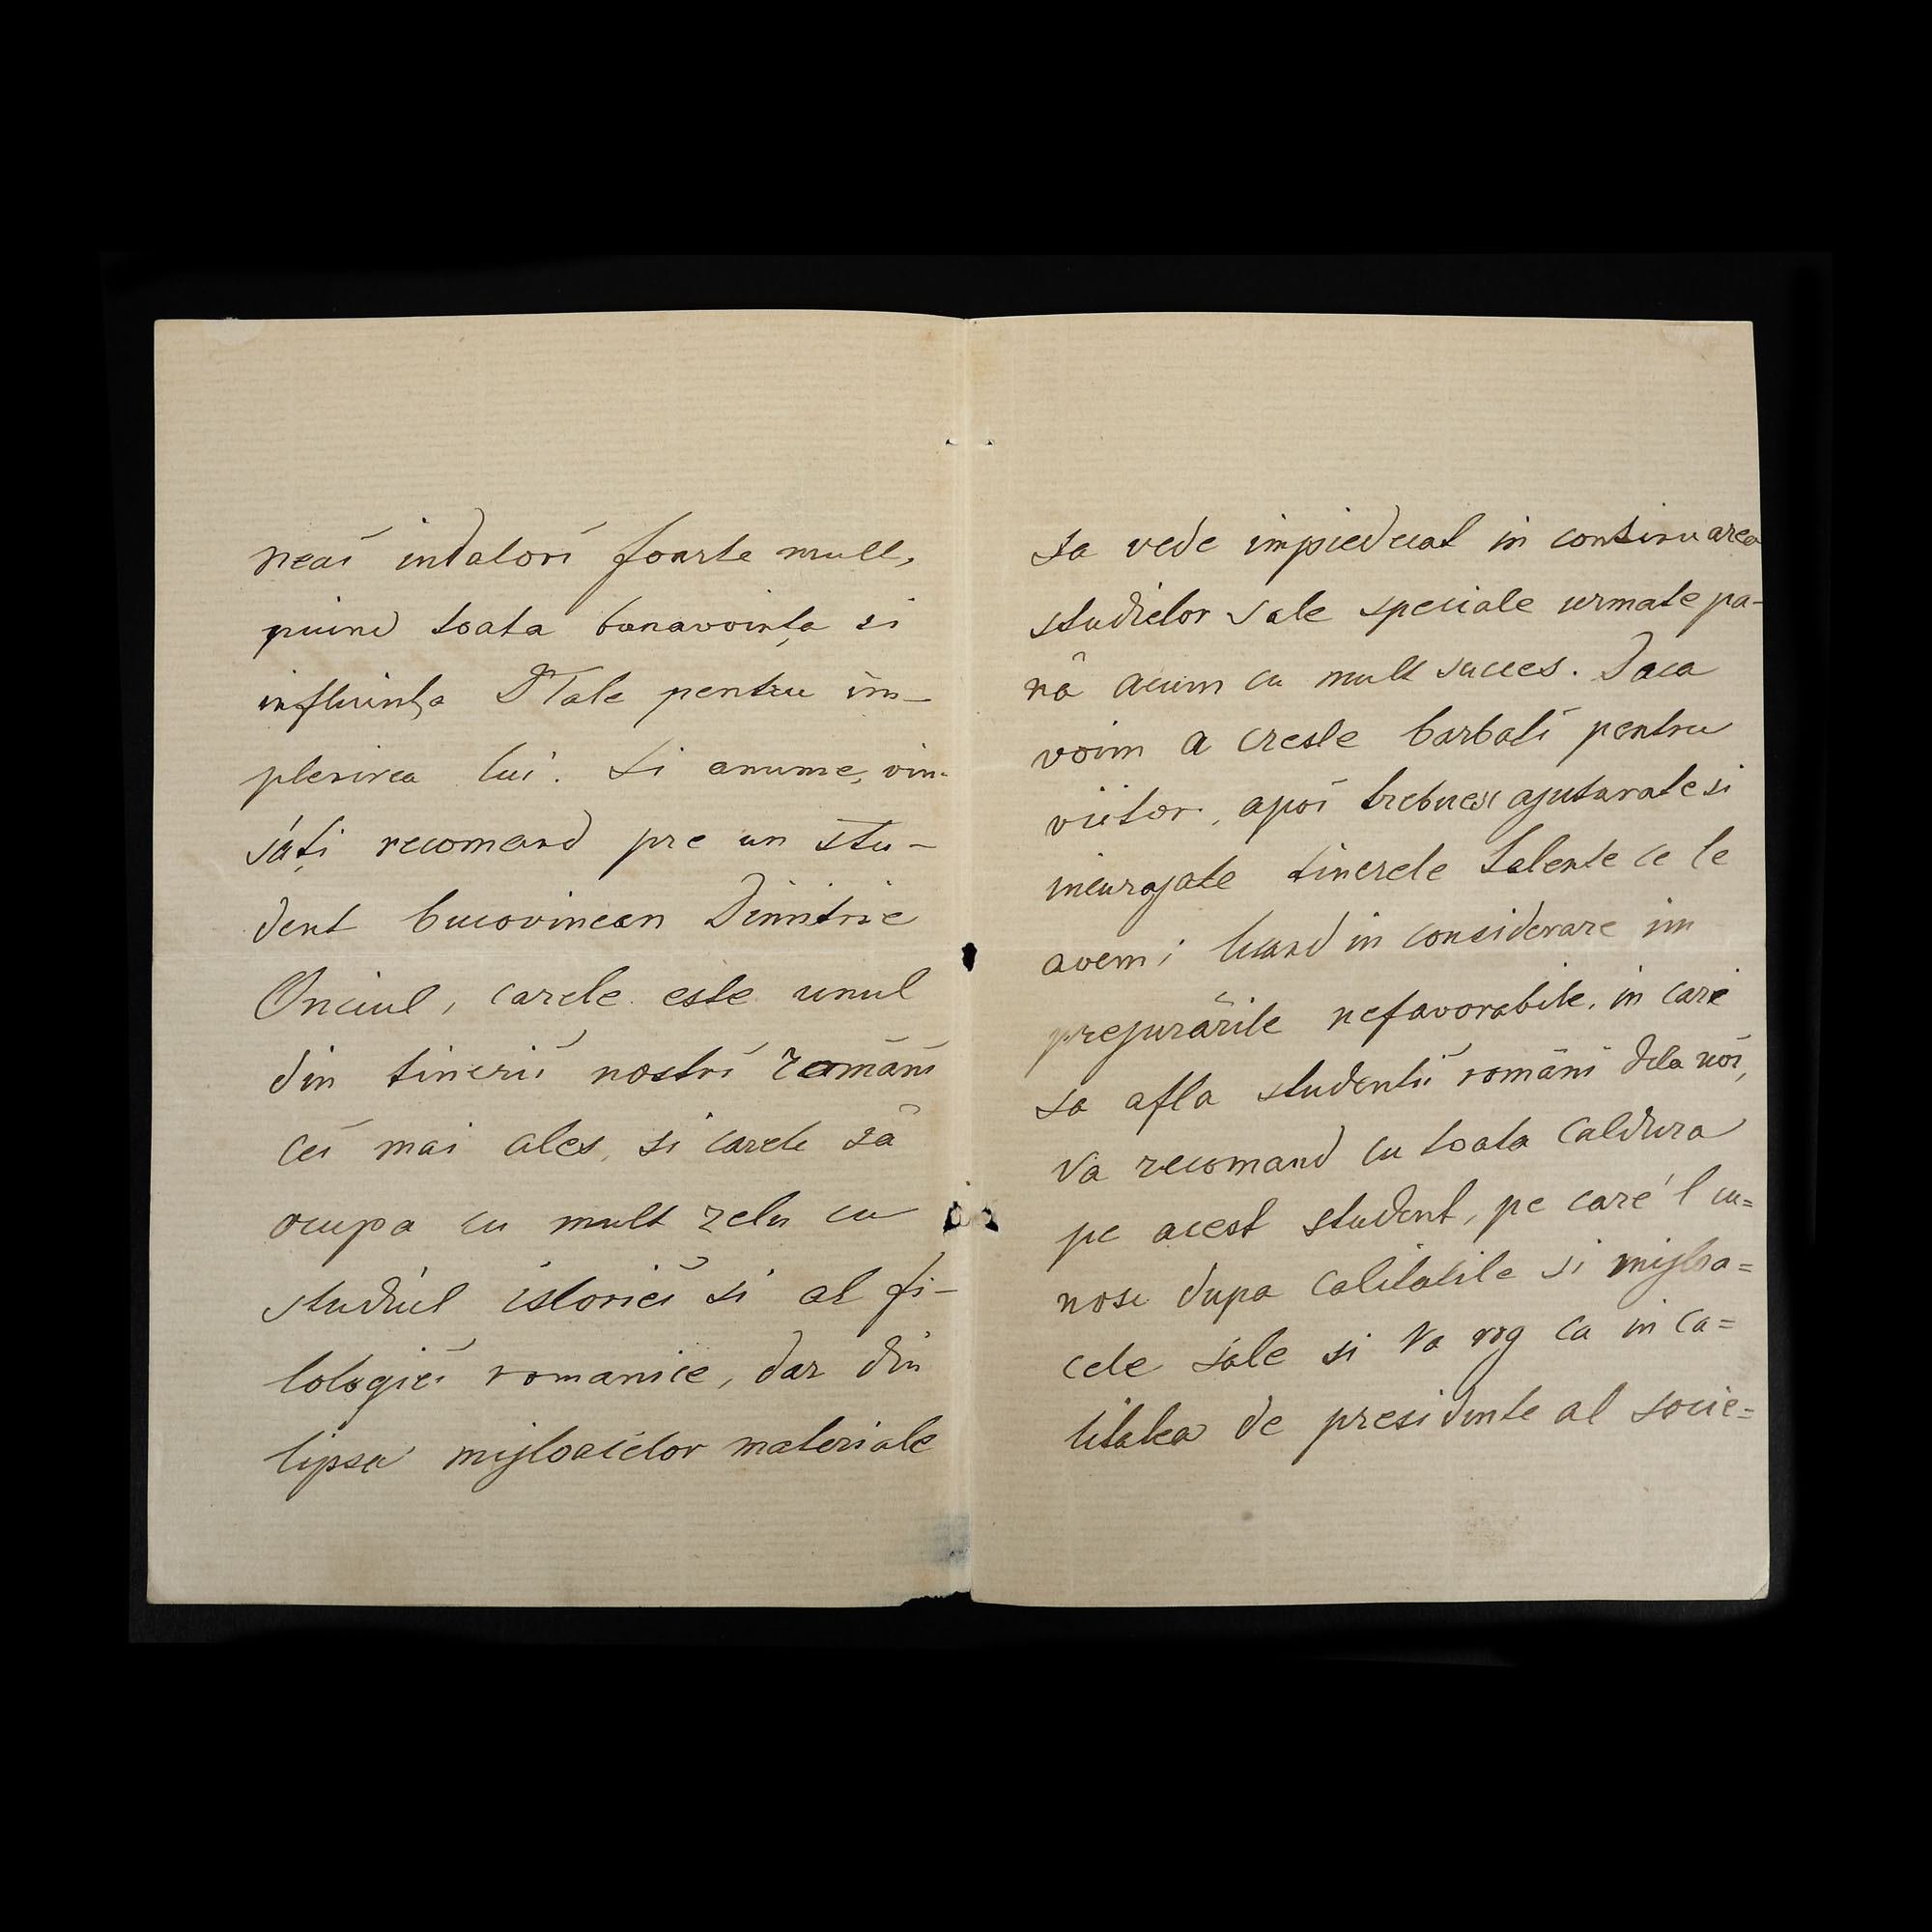 neaĭ indatorĭ foarte mult,
puind toata bunavointa si
influința DTale pentru im-
plenirea luĭ. Si anume, vin
sáți recomand pre un stu-
dent bucovinean Dimitrie
Onciul, carele este unul
din tineriĭ nostrĭ romānĭ
ceĭ mai ales, si carele sā
ocupa cu mult zelu cu
studiul istorieĭ si al fi-
lologieĭ romanice, dar din
lipsa mijloacelor materiale
sa vede impiedecat in continuarea
studielor sale speciale urmate pa-
nâ acum cu mult succes. Daca
voim a creste barbatĭ pentru
viitor, apoĭ trebuesc ajuturate si
incurajate tinerele talente ce le
avem; luand in considerare im
prejurările nefavorabile, in care
sa afla studentiĭ romānĭ dela noĭ,
Va recomand cu toata caldura
pe acest student, pe care'l cu=
nosc dupa calitatile si mijloa=
cele sale si Va rog ca in ca=
litatea de presidente al socie=